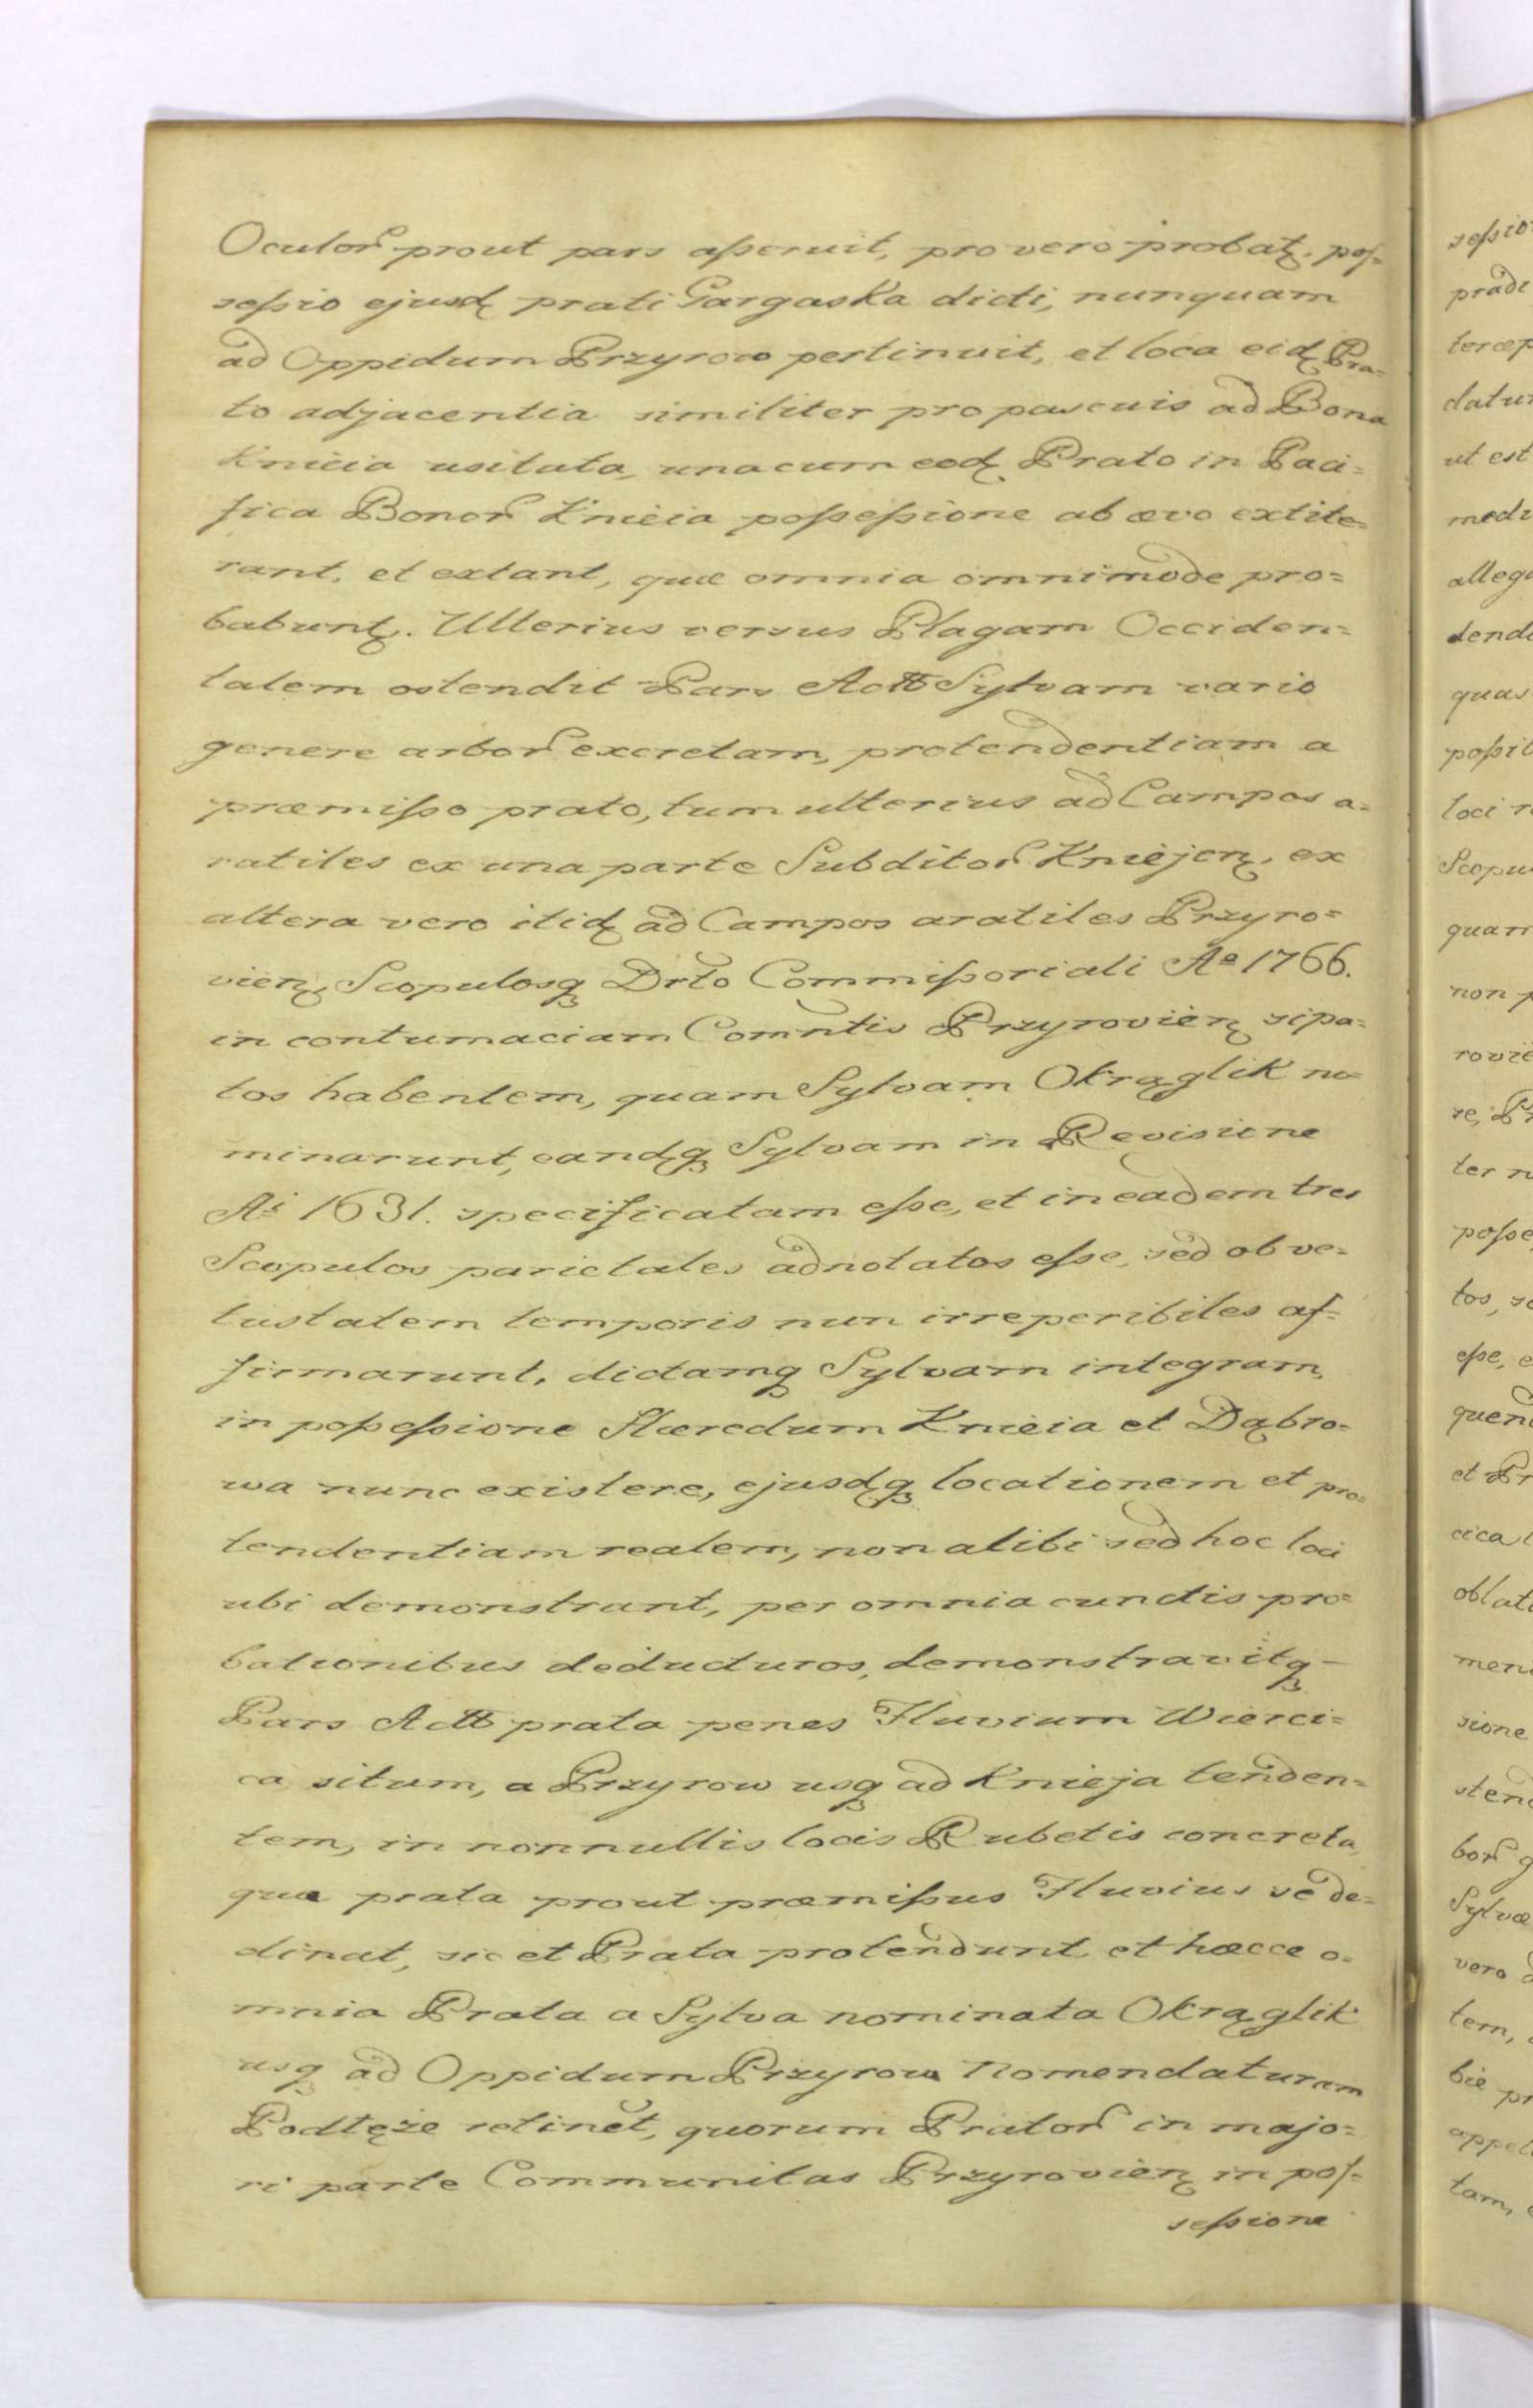 Oculor prout pars asseruit, pro vero probatę. pos=
sessio ejusdę prati Gargaska dicti, nunquam
ad Oppidum Przyrow pertinuit, et loca eidę Pra=
to adjacentia similiter pro pascuis ad Bona
Knieia usitata, unacum eodę Prato in Paci=
fica Bonor Knieia possessione ab ævo extite=
rant, et extant, quæ omnia omnimode pro=
babuntę. Ulterius versus Plagam Occiden=
talem ostendit Pars Actt Sylvam vario
genere arbor excretam, protendentiam a
præmisso prato, tum ulterius ad Campos a=
ratiles ex una parte Subditor Kniejenę, ex
altera vero itidę ad Campos aratiles Przyro=
vienę, Scopulosq Drto Commissoriali Aº 1766.
in contumaciam Comntis Przyrovienę sipa=
tos habentem, quam Sylvam Okrąglik no=
minarunt, eandęq Sylvam in Revisione
Ai 1631. specificatam esse, et in eadem tres
Scopulos parietales adnotatos esse, sed ob ve=
tustatem temporis nun irreperibiles af=
firmarunt, dictamq Sylvam integram,
in possessione Hæredum Knieia et Dąbro=
wa nunc existere, ejusdęq locationem et pro=
tendentiam realem, non alibi sed hoc loci
ubi demonstrant, per omnia cunctis pro=
bationibus deducturos, demonstravitq
Pars Actt prata penes Fluvium Wierci=
ca situm, a Przyrow usq ad Knieja tenden=
tem, in nonnullis locis Rubetis concreta,
quæ prata prout præmissus Fluvius se de=
clinat, sic et Prata protendunt et hæcce o=
mnia Prata a Sylva nominata Okrąglik
usq ad Oppidum Przyrow Nomenclaturam
Podłęże retinet, quorum Prator in majo=
ri parte Communitas Przyrovienę in pos=
sessione